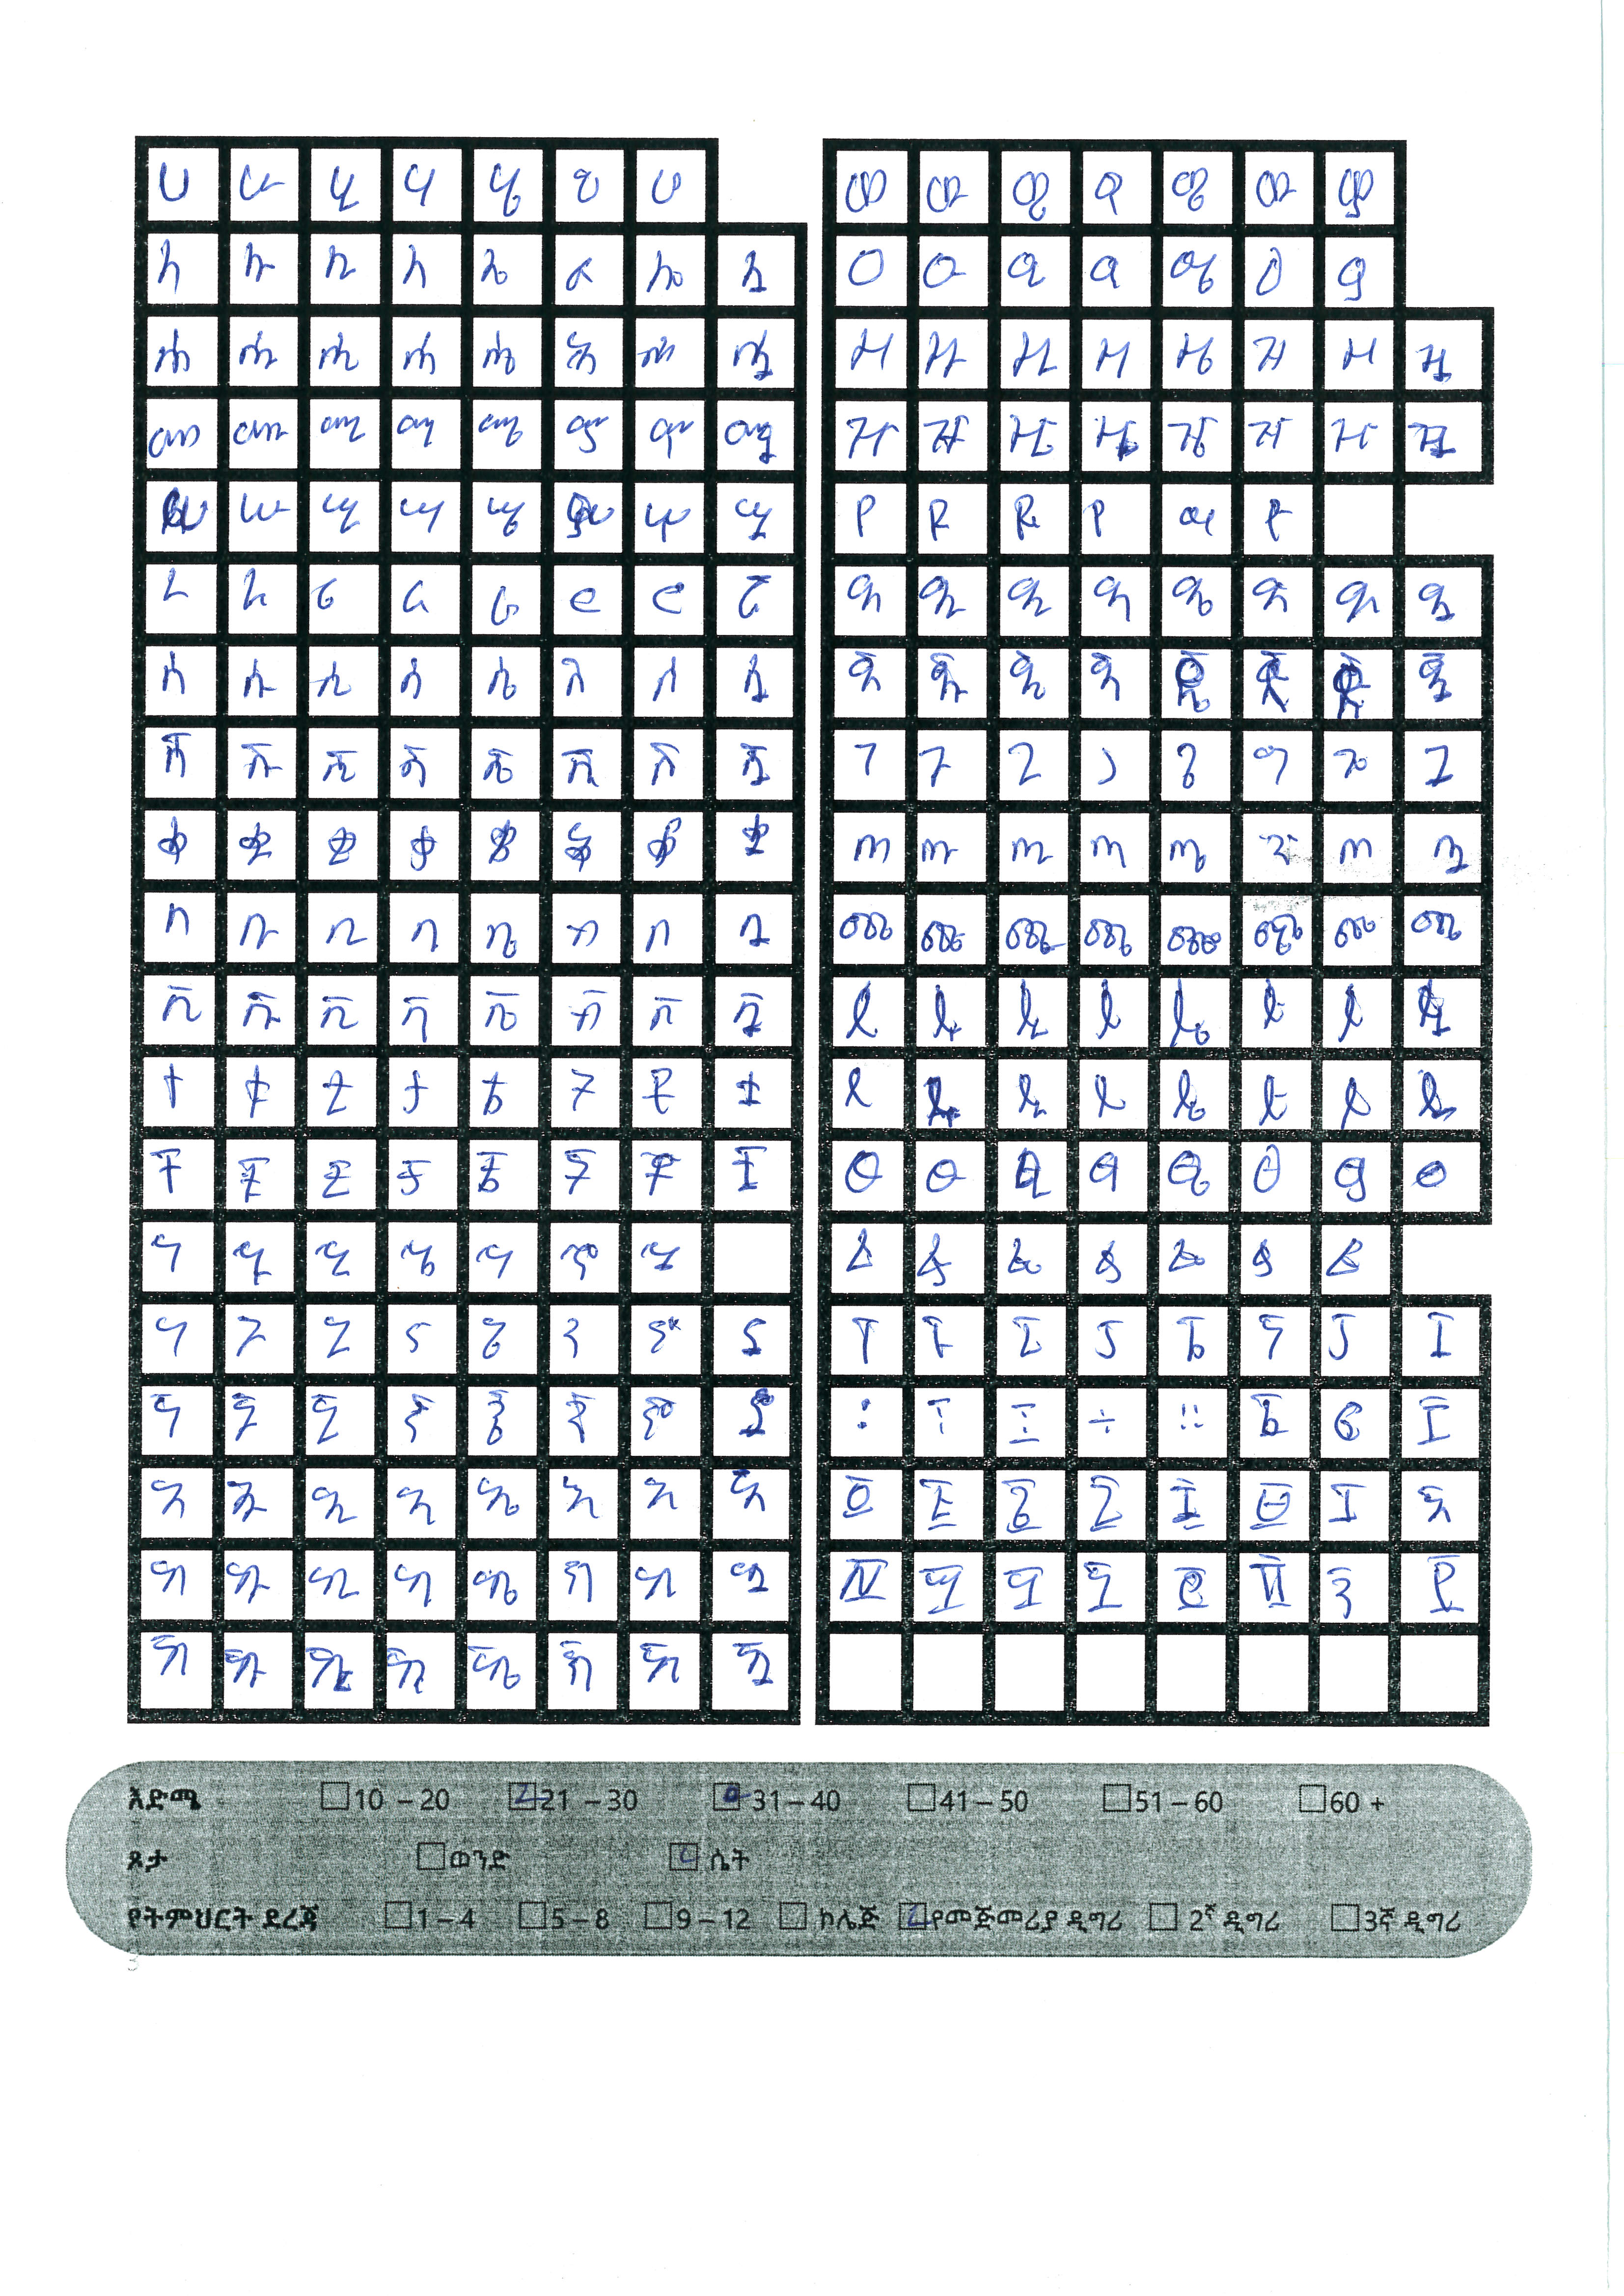 ሀ ሁ ሂ ሃ ሄ ህ ሆ
ለ ሉ ሊ ላ ሌ ል ሎ ሏ
ሐ ሑ ሒ ሓ ሔ ሕ ሖ ሗ
መ ሙ ሚ ማ ሜ ም ሞ ሟ
ሠ ሡ ሢ ሣ ሤ ሥ ሦ ሧ
ረ ሩ ሪ ራ ሬ ር ሮ ሯ
ሰ ሱ ሲ ሳ ሴ ስ ሶ ሷ
ሸ ሹ ሺ ሻ ሼ ሽ ሾ ሿ
ቀ ቁ ቂ ቃ ቄ ቅ ቆ ቋ
በ ቡ ቢ ባ ቤ ብ ቦ ቧ
ቨ ቩ ቪ ቫ ቬ ቭ ቮ ቯ
ተ ቱ ቲ ታ ቴ ት ቶ ቷ
ቸ ቹ ቺ ቻ ቼ ች ቾ ቿ
ኀ ኁ ኂ ኄ ኅ ኆ
ነ ኑ ኒ ና ኔ ን ኖ ኗ
ኘ ኙ ኚ ኛ ኜ ኝ ኞ ኟ
አ ኡ ኢ ኣ ኤ እ ኦ ኧ
ከ ኩ ኪ ካ ኬ ክ ኮ ኳ
ኸ ኹ ኺ ኻ ኼ ኽ ኾ ዃ
ወ ዉ ዊ ዋ ዌ ው ዎ
ዐ ዑ ዒ ዓ ዔ ዕ ዖ
ዘ ዙ ዚ ዛ ዜ ዝ ዞ ዟ
ዠ ዡ ዢ ዣ ዤ ዥ ዦ ዧ
የ ዩ ዪ ያ ዬ ይ
ደ ዱ ዲ ዳ ዴ ድ ዶ ዷ
ጀ ጁ ጂ ጃ ጄ ጅ ጆ ጇ
ገ ጉ ጊ ጋ ጌ ግ ጎ ጓ
ጠ ጡ ጢ ጣ ጤ ጥ ጦ ጧ
ጨ ጩ ጪ ጫ ጬ ጭ ጮ ጯ
ጰ ጱ ጲ ጳ ጴ ጵ ጶ ጷ
ጸ ጹ ጺ ጻ ጼ ጽ ጾ ጿ
ፀ ፁ ፂ ፃ ፄ ፅ ፆ
ፈ ፉ ፊ ፋ ፌ ፍ ፎ
ፐ ፑ ፒ ፓ ፔ ፕ ፖ ፗ
፡ ፣ ÷ ።
እድሜ 10 – 20 21 – 30 31 – 40 41 – 50 51 – 60 60 +
ጾታ ወንድ ሴት
የትምህርት ደረጃ 1 – 4 5 – 8 9 – 12 ኮሌጅ የመጀመሪያ ዲግሪ 2ኛ ዲግሪ 3ኛ ዲግሪ
3